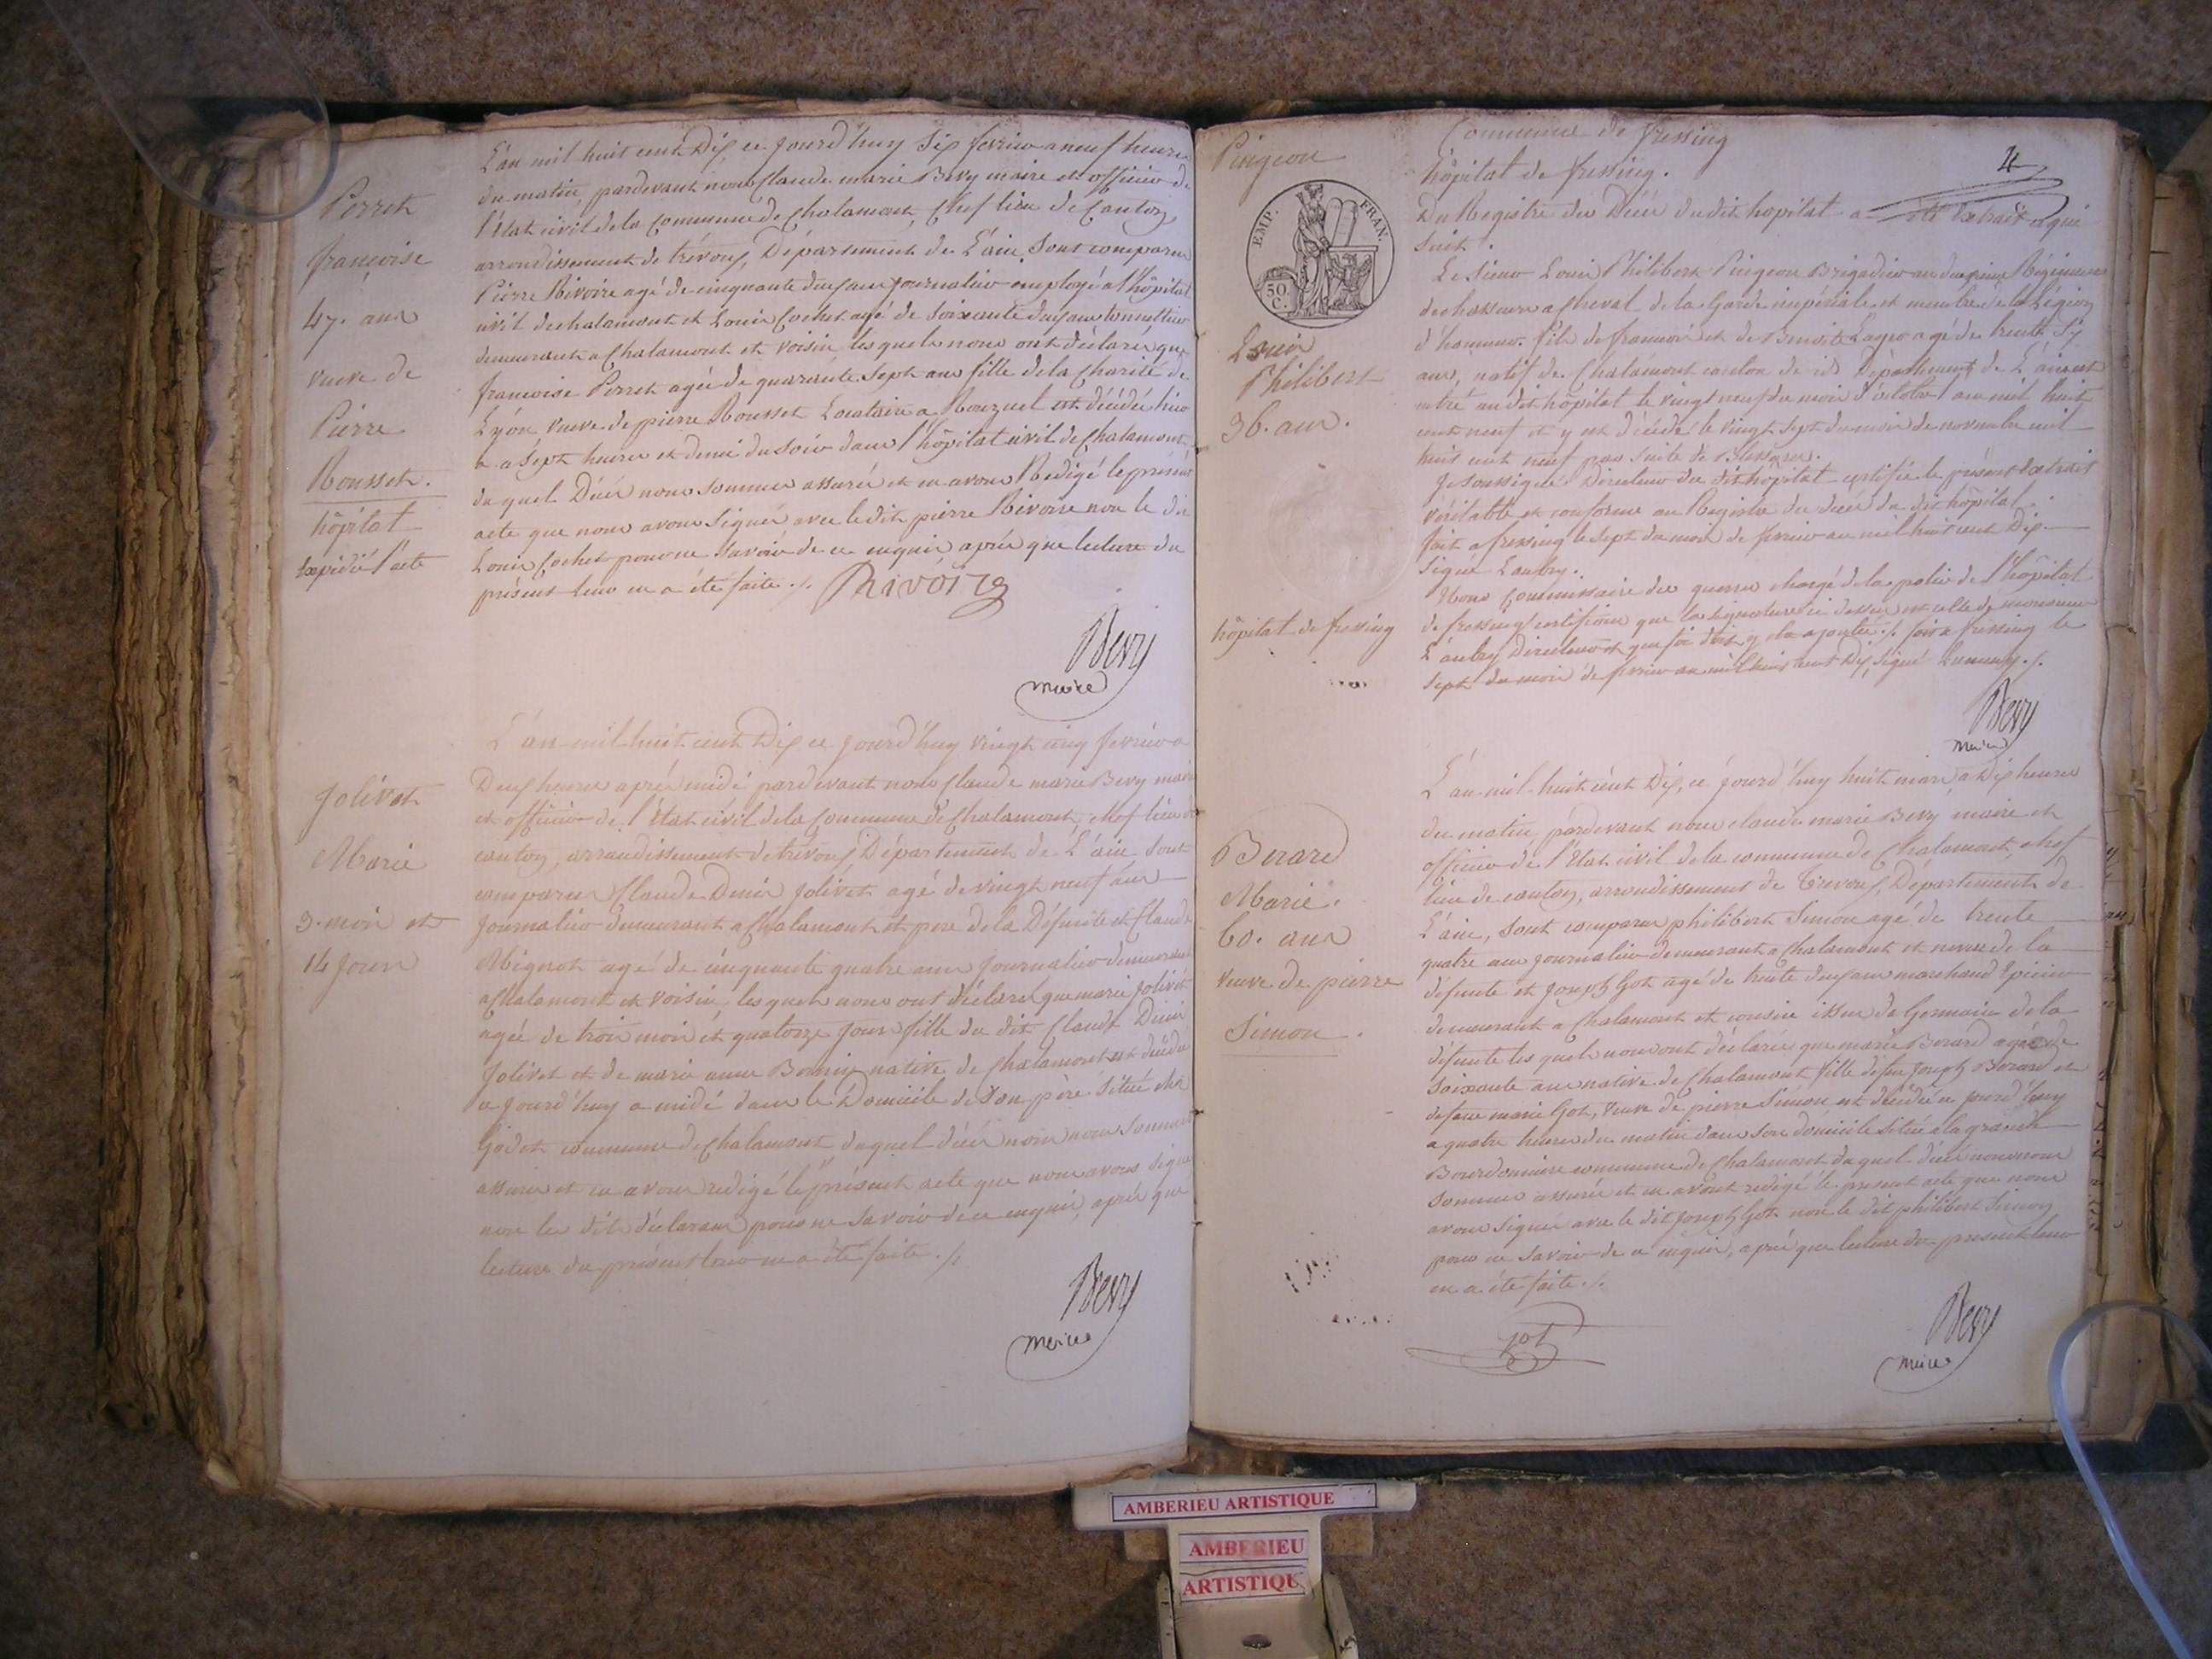 Perret
françoise
47. ans
veuve de
Pierre
Rousset.
hôpital
Expédié l'acte
L'an mil huit cent Dix ce jourd'huy Six fevrier a neuf heures
du matin, pardevant nous Claude marie Bevy maire et officier de
l'état civil de la Commune de Chalamont, Chef lieu de Canton
arrondissement de trévoux, Département de L'ain, Sont comparus
Pierre Rivoire agé de cinquante deux ans journalier employé a l'hôpital
civil de chalamont et Louis Cochet agé de Soixante deux ans
demeurants a Chalamont et voisins lesquels nous ont déclarés que
françoise Perret agée de quarante Sept ans fille de la Charité de
Lyon veuve de pierre Rousset Locataire a est décédée hier
a Sept heures et demi du Soir dans l'hôpital civil de Chalamont
du quel Décès nous Sommes assurés et en avons Rédigé le présent
acte que nous avons Signés avec le dit pierre Rivoire non le dit
Louis Cochet pour ne Savoir de ce enquis, après que lecture du
présent leur en a été faite ./. Rivoire
Bevy
maire
Jolivet
Marie
3. mois et
14 jours
L'an mil huit cent Dix ce jourd'huy vingt cinq fevrier a
Deux heures après midi pardevant nous Claude marie Bevy maire
et officier de l'état civil de la Commune de Chalamont, chef lieu de
canton, arrondissement de trévoux Département de L'ain, Sont
comparus Claude Denis Jolivet agé de vingt neuf ans
Journalier demeurant a Chalamont et pere de la Défunte et Claude
Mignot agé de cinquante quatre ans journalier demeurant
a Chalamont et voisin, lesquels nous ont déclarés que marie Jolivet
agée de trois mois et quatorze jours fille du dit Claude Denis
Jolivet et de marie anne native de Chalamont est décédée
ce jourd'huy a midi dans le Domicile de Son père Situé chez
Godet commune de Chalamont, duquel décès nous nous Sommes
assurés et en avons redigé le présent acte que nous avons Signé
non les dits déclarans pour ne Savoir de ce enquis, après que
lecture du présent leur en a été faite ./.
Bevy
maire
Pingeon
EMP. FRAN.
50 C.
Louis
Philibert
36. ans.
hôpital de fressing
4
Commune de fressing
hôpital de fressing.
Du Registre des Décès du dit hopital a été Extrait ce qui
Suit.
Le Sieur Louis Philibert Pingeon Brigadier au Régiment
de chasseurs a Cheval de la Garde impériale et membre de la Légion
d'honneur. fils de françois et de Benoite agé de trente Six
ans, natif de Chalamont canton de id Département de L'ain est
entré au dit hôpital le vingt neuf du mois d'octobre l'an mil huit
cent neuf et y est décédé le vingt Sept du mois de novembre mil
huit cent neuf par Suite de Blessures.
Je soussigné Directeur du dit hôpital certifie le présent Extrait
véritable et conforme au Registre des décès du dit hôpital.
fait a fressing le Sept du mois de fevrier an mil huit cent Dix.
Signé Laubry.
Nous Commissaire des guerres chargé de la police de l'hôpital
de fressing certifions que la signature ci dessus est celle de monsieur
Laubry Directeur et que foi doit y être ajoutée ./. fait a fressing le
Sept du mois de fevrier an mil huit cent Dix, Signé ./.
Bevy
maire
Berard
Marie.
60. ans
veuve de pierre
Simon.
L'an mil huit cent Dix, ce jourd'huy huit mars a Dix heures
du matin pardevant nous claude marie Bevy, maire et
officier de l'état civil de la commune de Chalamont, chef
lieu de canton, arrondissement de Trevoux, Département de
L'ain, Sont comparus philibert Simon agé de trente
quatre ans journalier demeurant a Chalamont et neveu de la
défunte et Joseph Got agé de trente deux ans marchand Epicier
demeurant a Chalamont et cousin issu de Germain de la
défunte les quels nous ont déclarés que marie Berard agée de
Soixante ans native de Chalamont fille de feu Joseph Berard et
de feue marie Got, veuve de pierre Simon est décédée ce jourd'huy
a quatre heures du matin dans son domicile Situé a la grande
Bourdonniere commune de Chalamont, duquel décès nous nous
Sommes assurés et en avons redigé le present acte que nous
avons Signés avec le dit Joseph Got non le dit philibert Simon
pour ne Savoir de ce enquis, après que lecture du present leur
en a été faite ./.
Got
Bevy
maire
AMBERIEU ARTISTIQUE
AMBERIEU
ARTISTIQUE